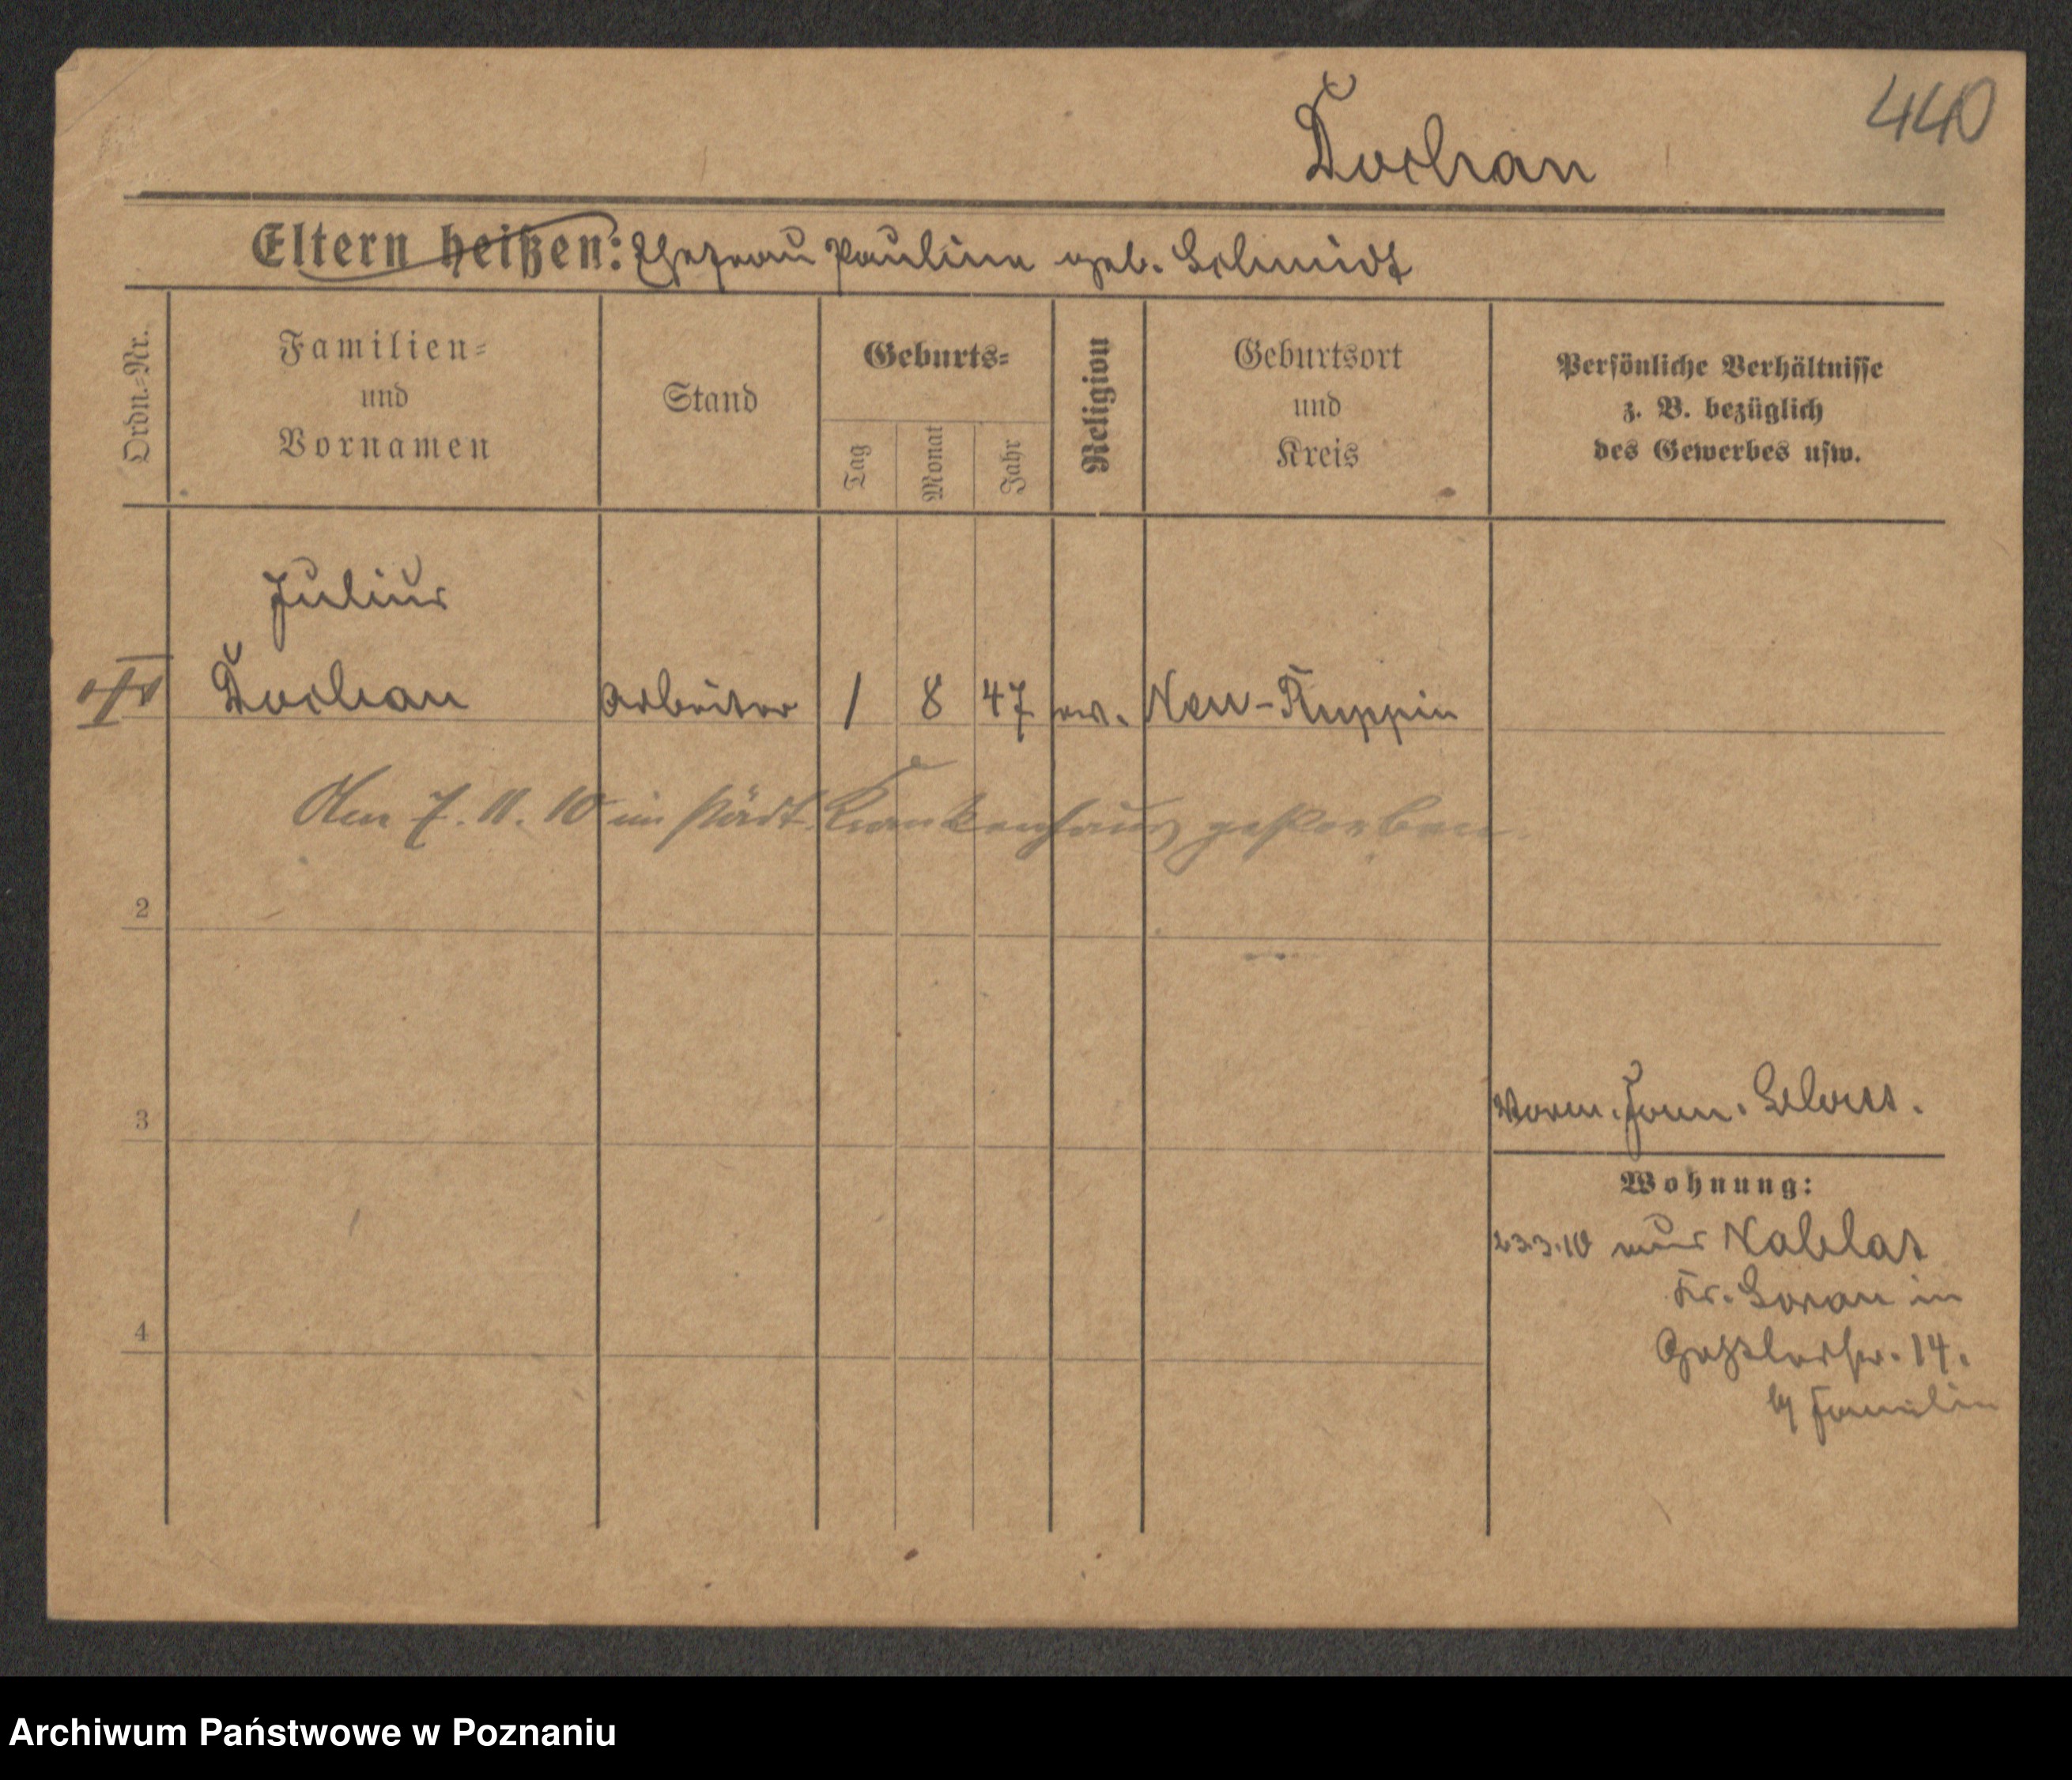 440
Dochan
Eltern heißen: Ehefrau Pauline geb. Schmidt
Ordn.-Nr.
Familien-
und
Vornamen
Stand
Geburts-
Tag
Monat
Jahr
Religion
Geburtsort
und
Kreis
Persönliche Verhältnisse
z. B. bezüglich
des Gewerbes usw.
Julius
Dochan Arbeiter 1 8 47 ev. Neu-Ruppin
Am 7. 11. 10 im städt. Krankenhaus gestorben
2
3
4
Wohnung:
23.3.10 aus
Kr. Sorau in
14.
Familie
Archiwum Państwowe w Poznaniu